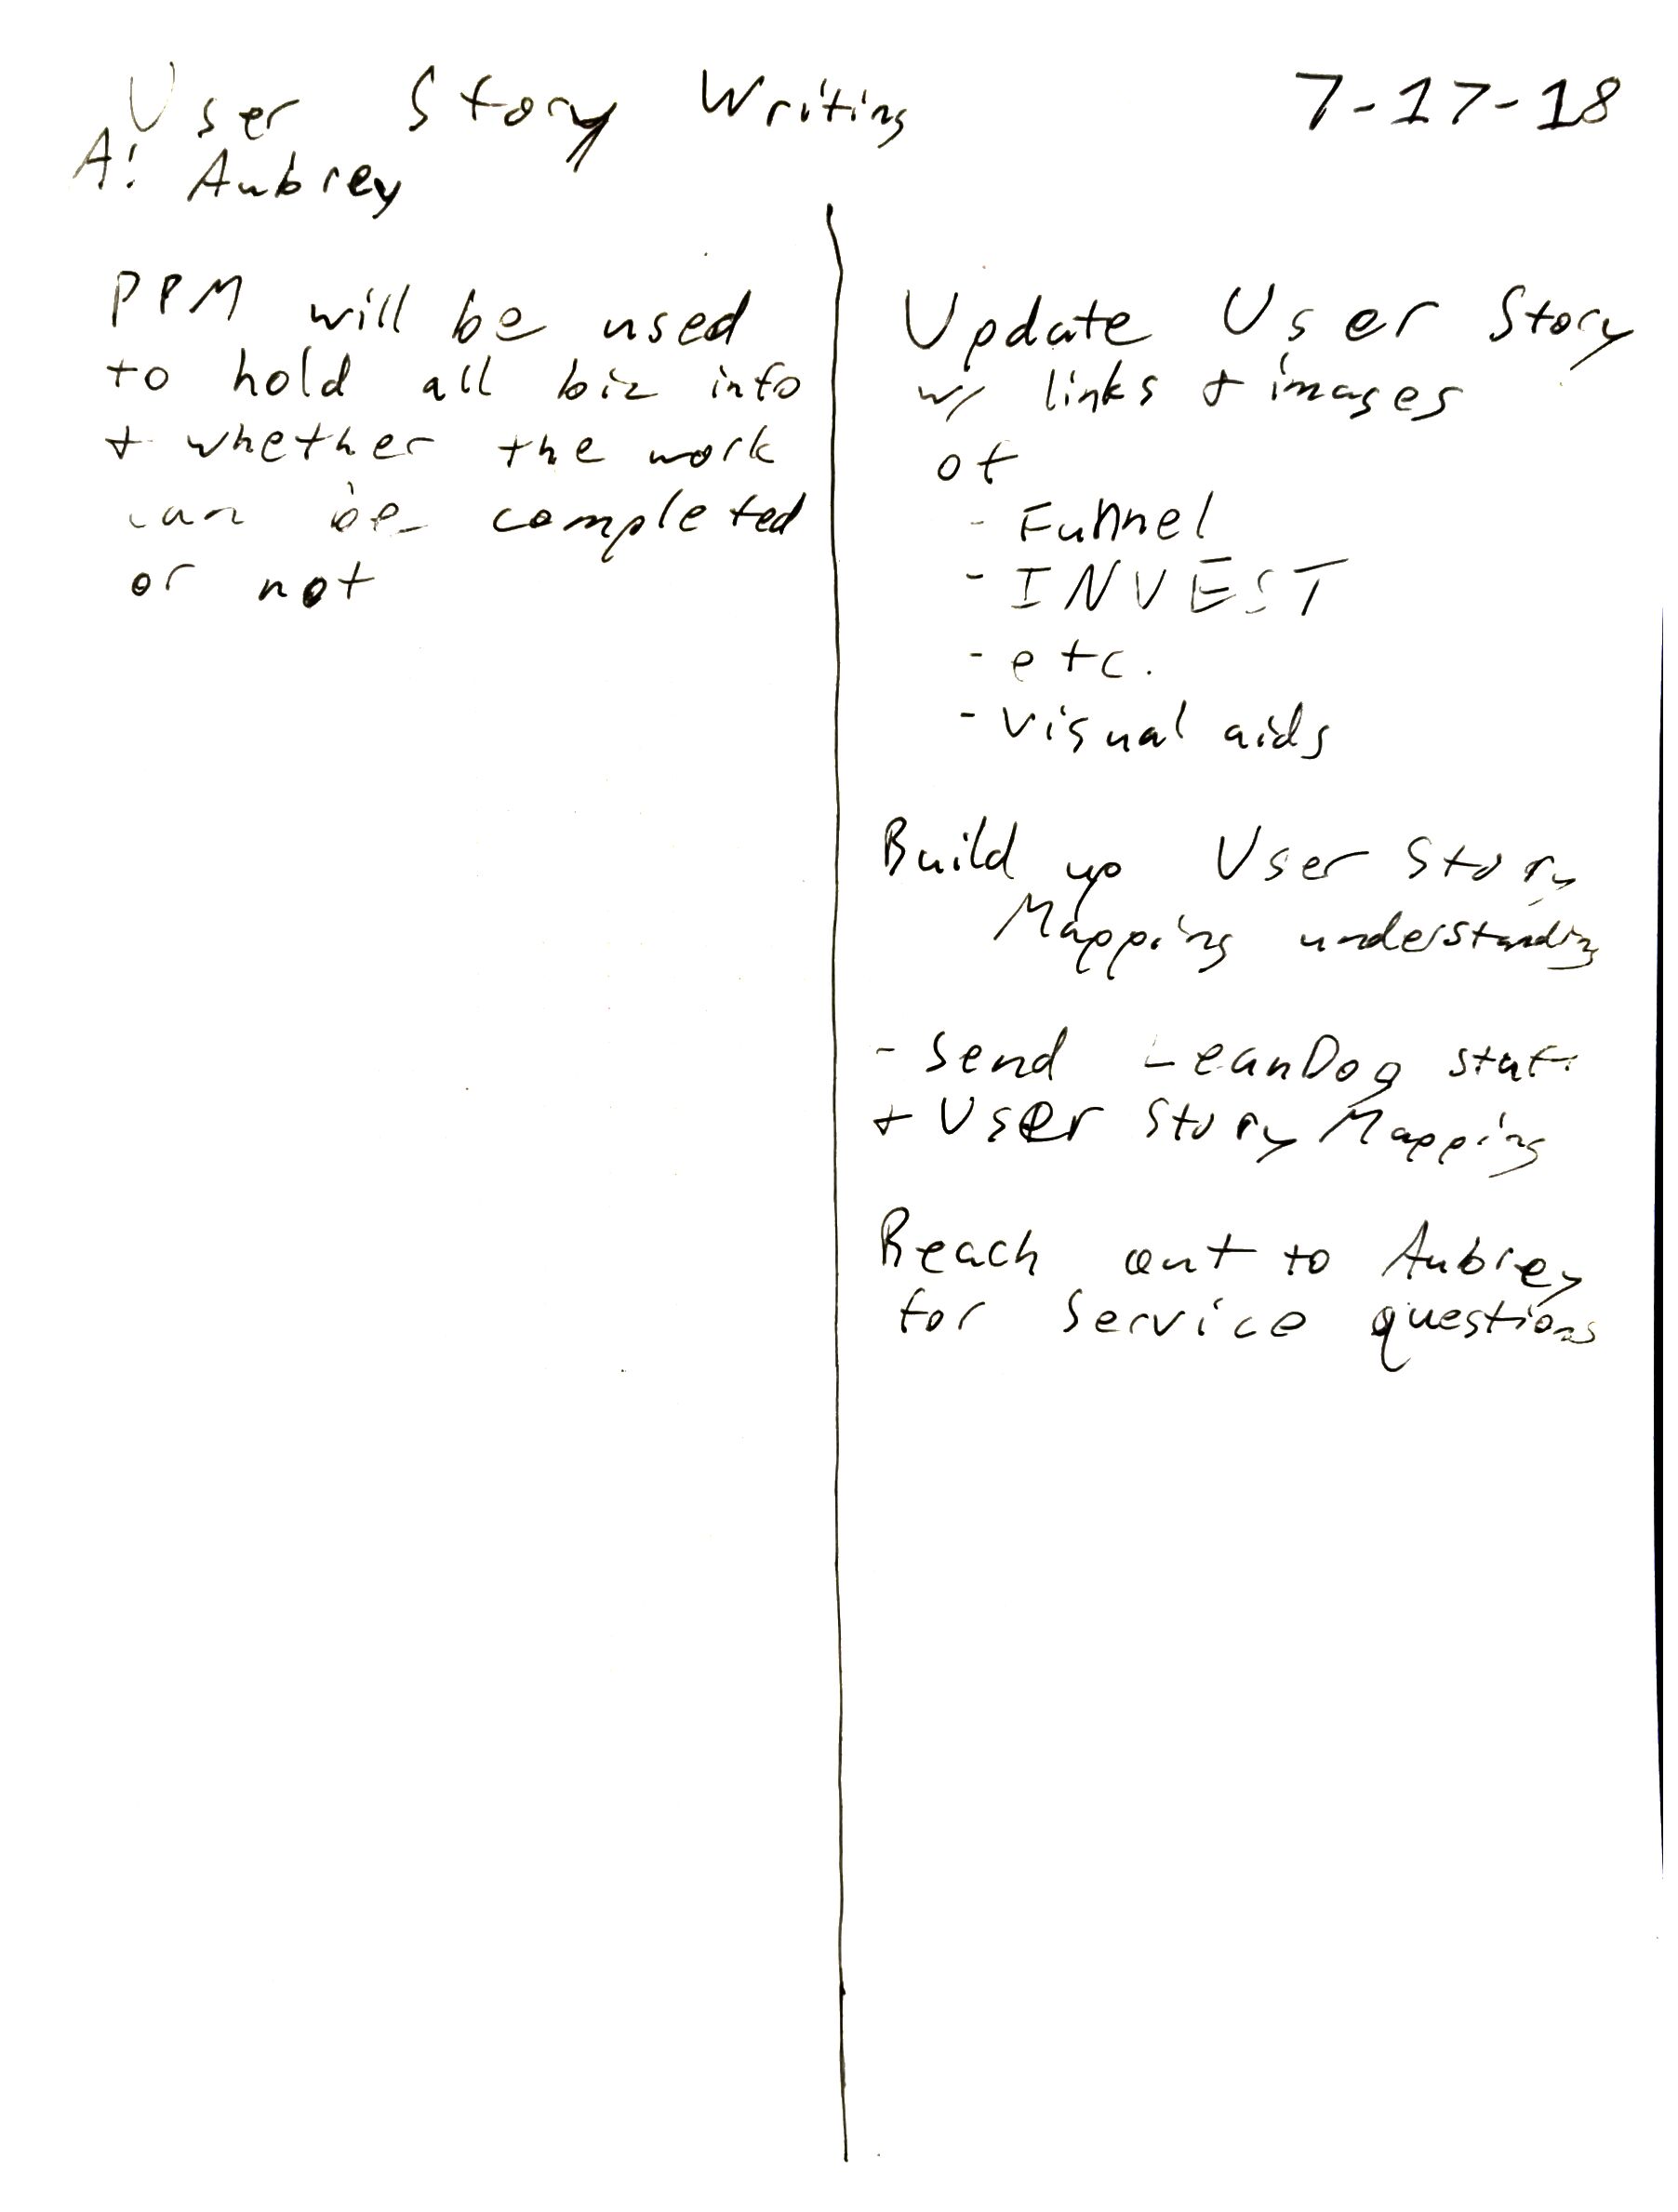 User Story Writing 7-17-18
A: Aubrey
PPM will be used
to hold all biz info
+ whether the work
can be completed
or not
Update User Story
w/ links + images
of
- Funnel
- INVEST
- etc.
- visual aids
Build up User Story
Mapping understanding
- Send LeanDog stuff
+ User Story Mapping
Reach out to Aubrey
for Service questions